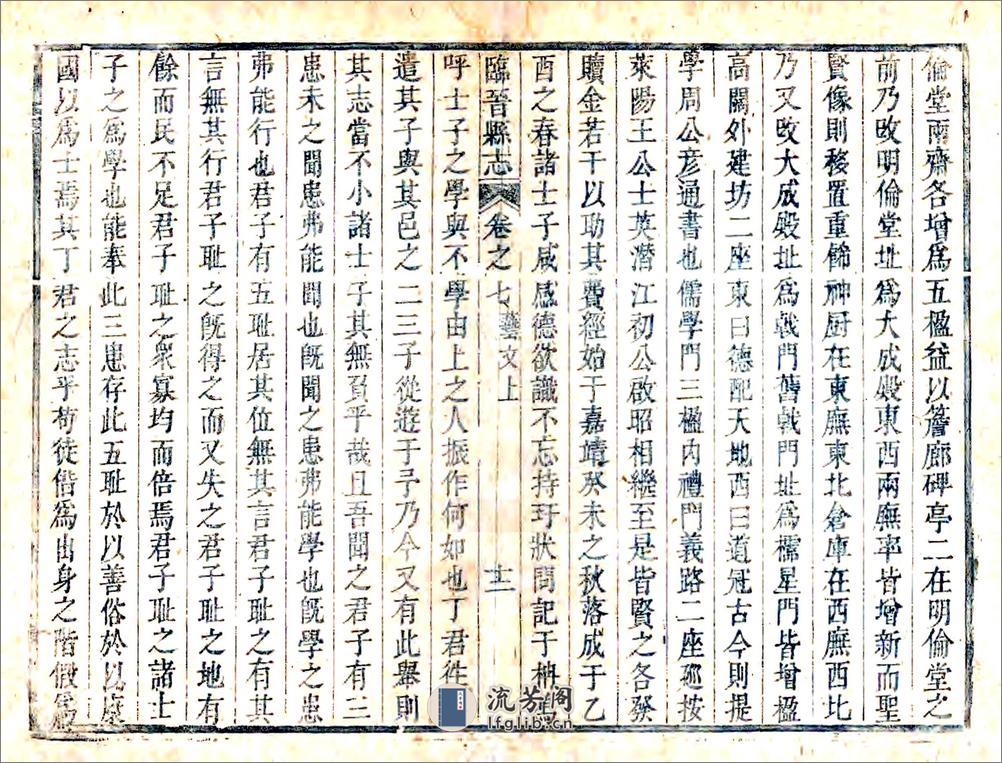 倫堂兩齋各增為五楹益以簷廊碑亭二在明倫堂之
前乃改明倫堂址為大成殿東西兩廡率皆增新而聖
賢像則移置重飾神厨在東廡東北倉庫在西廡西北
乃又改大成殿址為戟門舊戟門址為櫺星門皆增楹
高闊外建坊二座東曰德配天地西曰道冠古今則提
學周公彥通書也儒學門三楹內禮門義路二座廵按
萊陽王公士英潛江初公啟昭相繼至是皆賢之各發
贖金若干以助其費經始于嘉靖癸未之秋落成于乙
酉之春諸士子咸感德欲識不忘持玗狀問記于柟
臨晉縣志 卷之七 藝文上 十二
呼士子之學與不學由上之人振作何如也丁君徃
遣其子與其邑之二三子從遊于予乃今又有此舉則
其志當不小諸士子其無負乎哉且吾聞之君子有三
患未之聞患弗能聞也旣聞之患弗能學也旣學之患
弗能行也君子有五耻居其位無其言君子耻之有其
言無其行君子耻之旣得之而又失之君子耻之地有
餘而民不足君子耻之衆寡均而倍焉君子耻之諸士
子之為學也能奉此三患存此五耻於以善俗於以
國以為士焉其丁君之志乎苟徒偕為出身之階假為
流芳阁
lfglib.cn